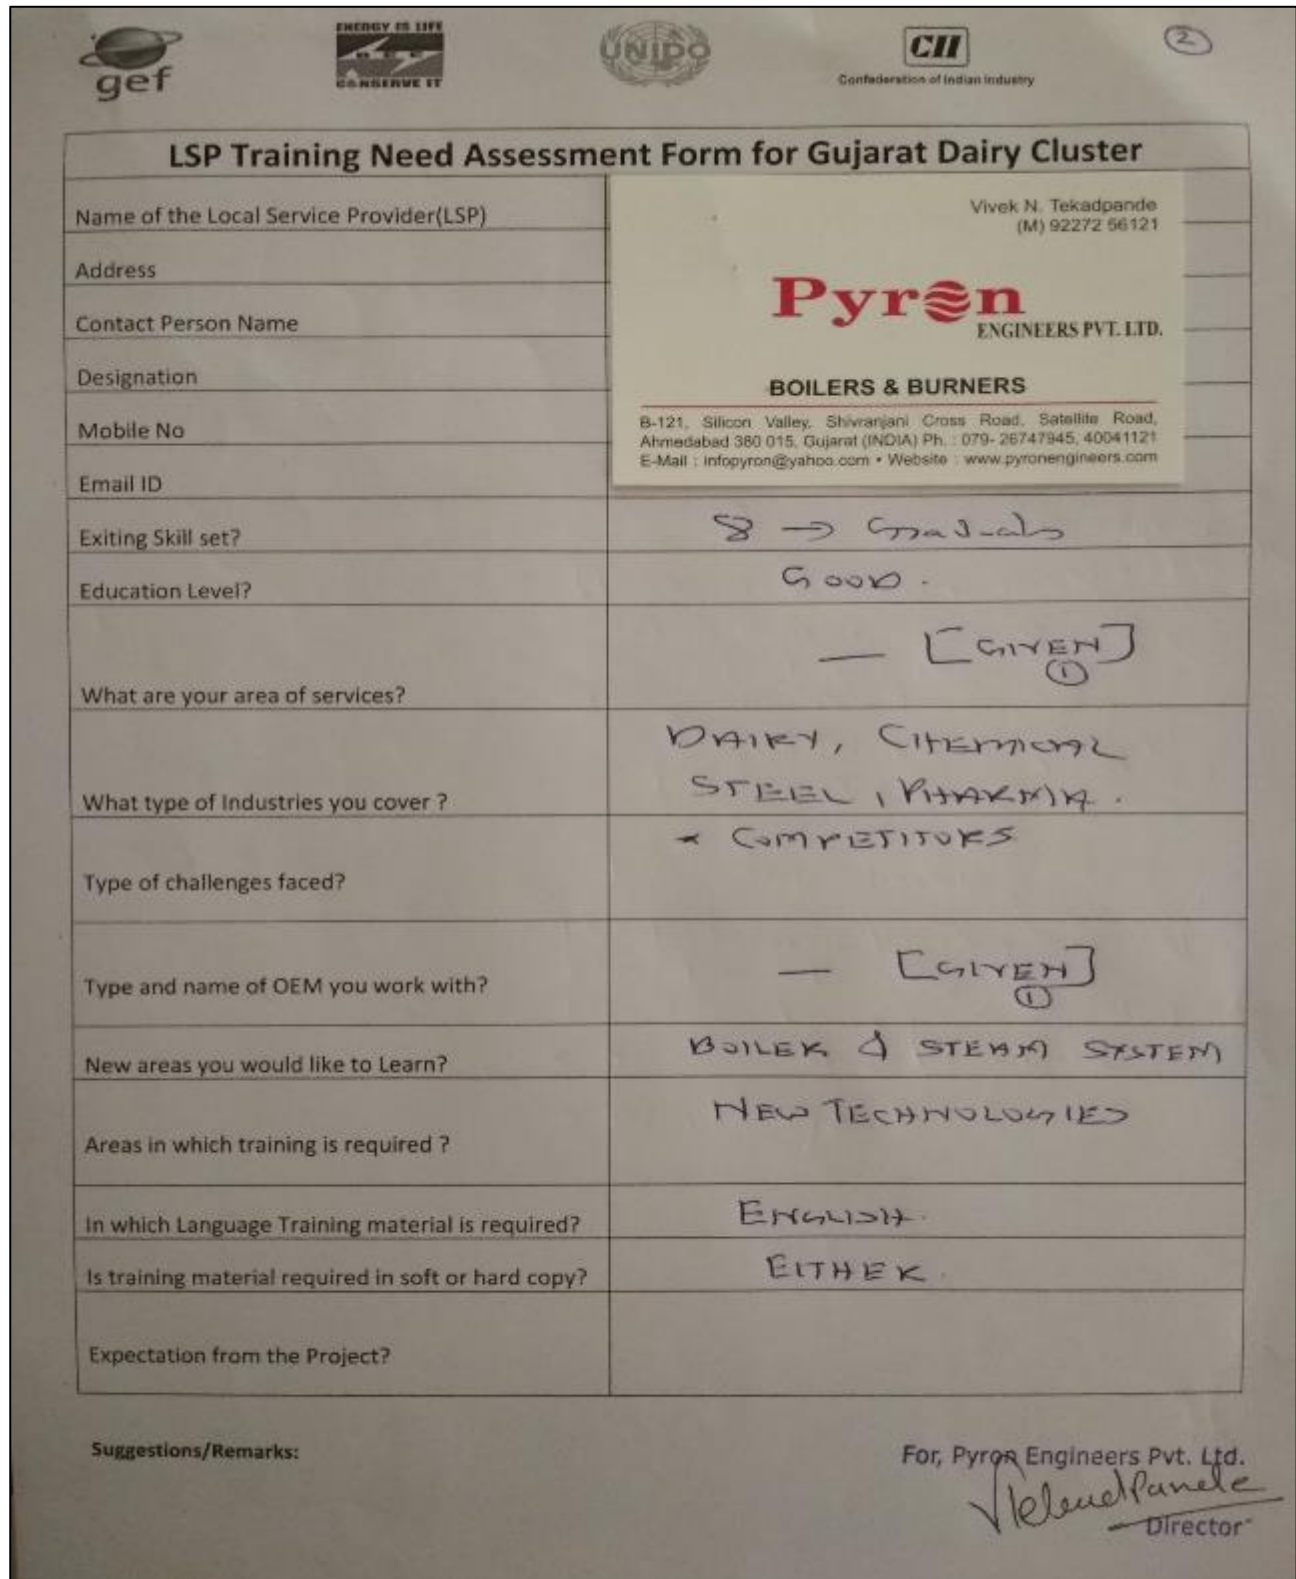 gef
ENERGY IS LIFE
BEE
CONSERVE IT
UNIDO
CII
Confederation of Indian Industry
2
LSP Training Need Assessment Form for Gujarat Dairy Cluster
Name of the Local Service Provider(LSP)
Vivek N. Tekadpande
(M) 92272 56121
Address
Pyron
ENGINEERS PVT. LTD.
Contact Person Name
Designation
BOILERS & BURNERS
Mobile No
B-121, Silicon Valley, Shivranjani Cross Road, Satellite Road,
Ahmedabad 380 015, Gujarat (INDIA) Ph. : 079- 26747945, 40041121
E-Mail : infopyron@yahoo.com • Website : www.pyronengineers.com
Email ID
Exiting Skill set? 8 →
Education Level? GOOD.
What are your area of services? — [GIVEN] 1
What type of Industries you cover ? DAIRY, CHEMICAL
STEEL, PHARMA.
Type of challenges faced? * COMPETITORS
Type and name of OEM you work with? — [GIVEN] 1
New areas you would like to Learn? BOILER & STEAM SYSTEM
Areas in which training is required ? NEW TECHNOLOGIES
In which Language Training material is required? ENGLISH.
Is training material required in soft or hard copy? EITHER.
Expectation from the Project?
Suggestions/Remarks:
For, Pyron Engineers Pvt. Ltd.
Director